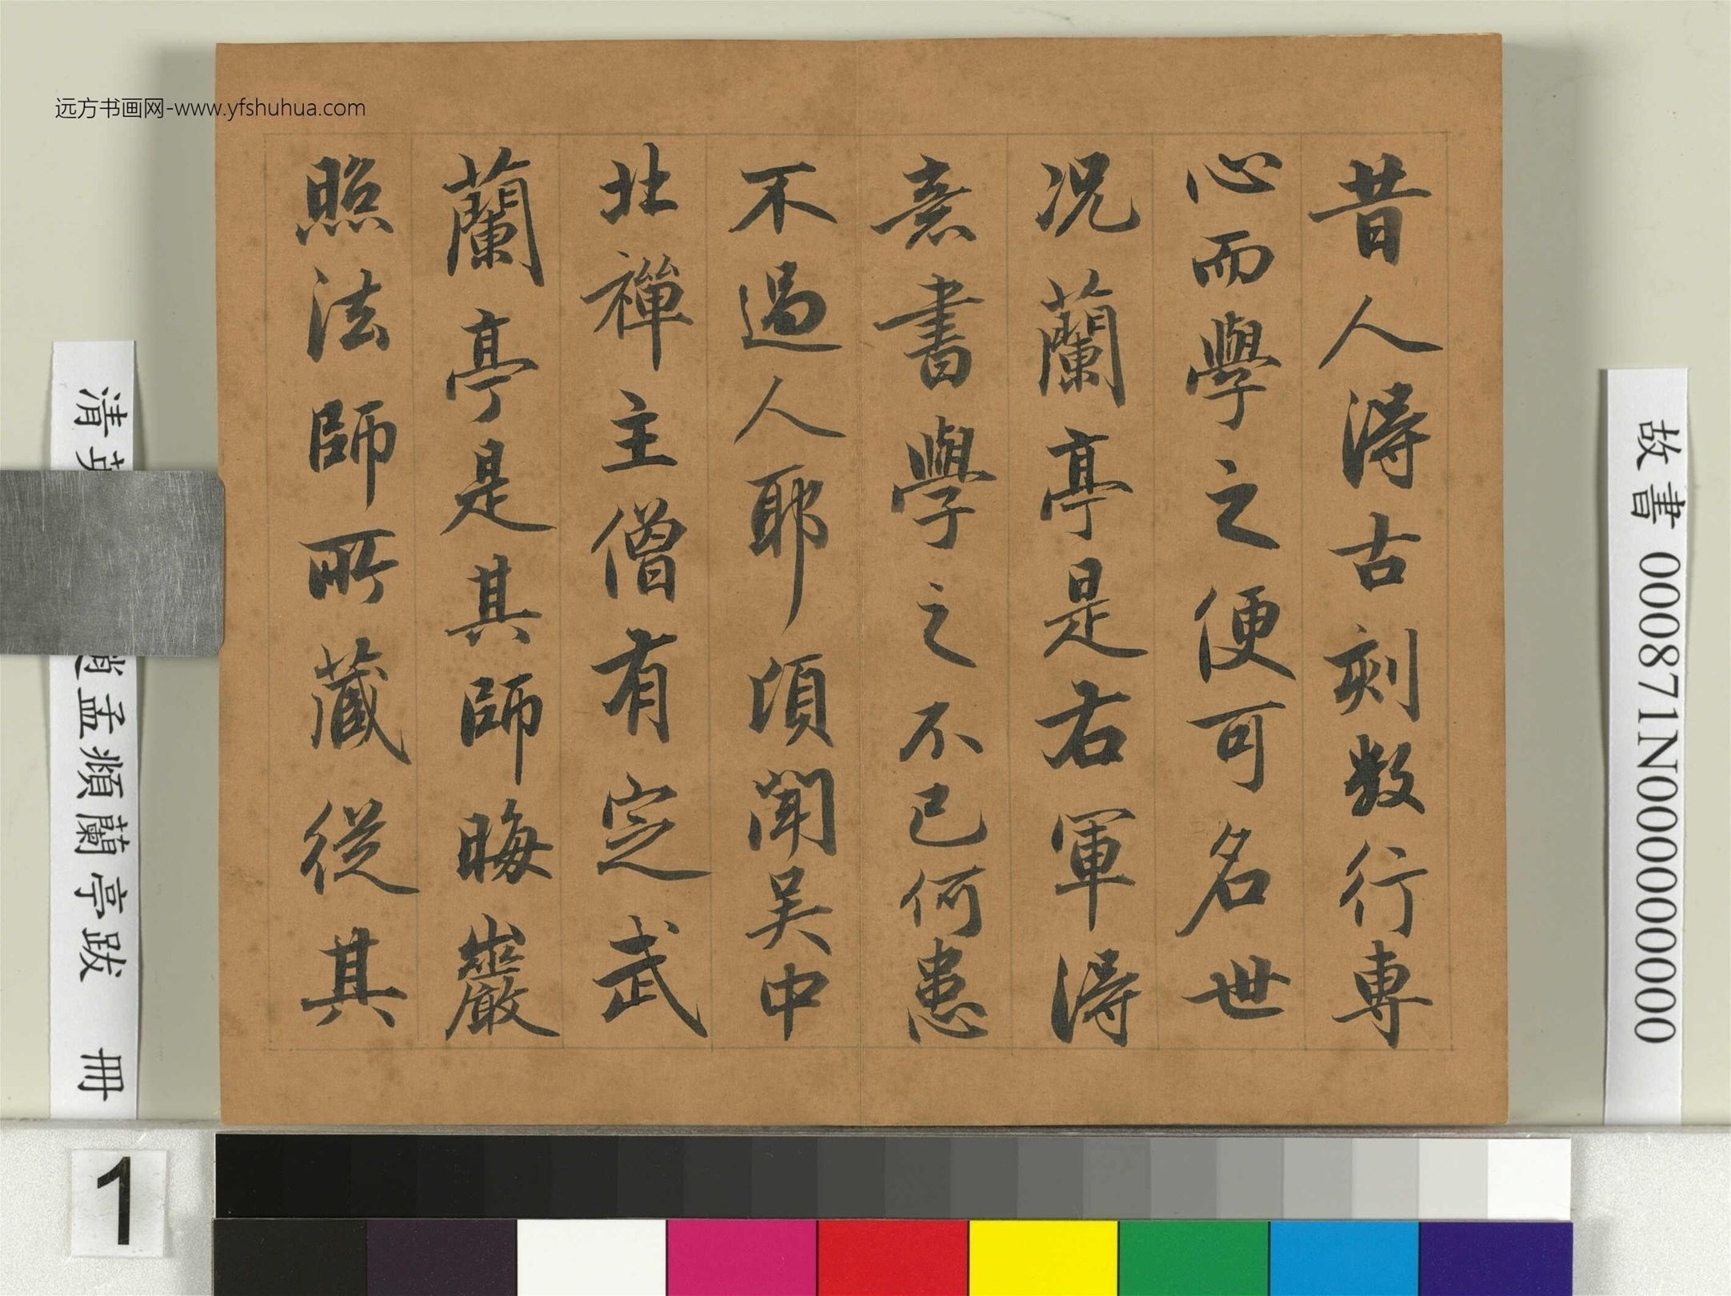 远方书画网-www.yfshuhua.com
昔人得古刻數行專
心而學之便可名世
况蘭亭是右軍得
意書學之不已何患
不過人耶頃聞吴中
北禪主僧有定武
蘭亭是其師晦巖
照法師所藏從其
故書 000871N000000000
清
趙孟頫蘭亭跋 冊
1